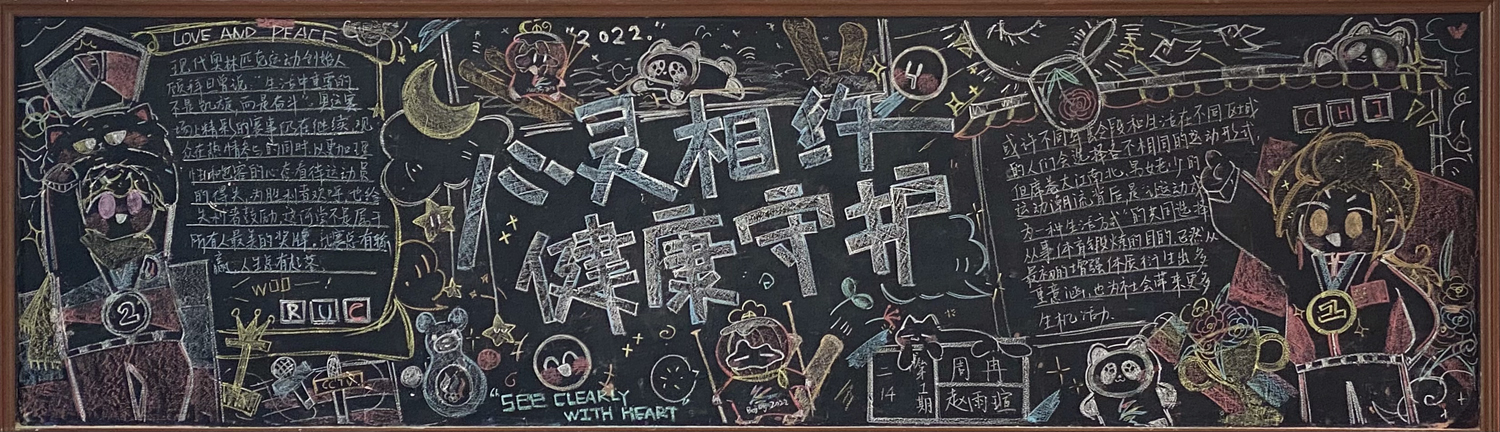 LOVE AND PEACE
现代奥林匹克运动创始人
顾拜旦曾说:"生活中重要的
不是凯旋,而是奋斗"奥运赛
场上精彩的赛事仍在继续,观
众在热情参与的同时,以更加理
性和宽容的心态看待运动员
的得失,为胜利者欢呼,也给
失利者鼓励,这何尝不是属于
所有人最美的奖牌,比赛总有输
赢,人生总有起落
WOO
RUC
2
CCTV
"2022."
4
心灵相约
健康守护
"SEE CLEARLY
WITH HEART"
Beijing 2022
二 第 周冉
14 期 赵雨瑄
或许不同年龄阶段和生活在不同区域
的人们会选择各不相同的运动形式,
但席卷大江南北、男女老少的
运动潮流背后,是以运动成
为一种生活方式"的共同选择
从事体育锻炼的目的,已然从
最初的增强体质衍生出多
重意涵,也为社会带来更多
生机活力.
CHI